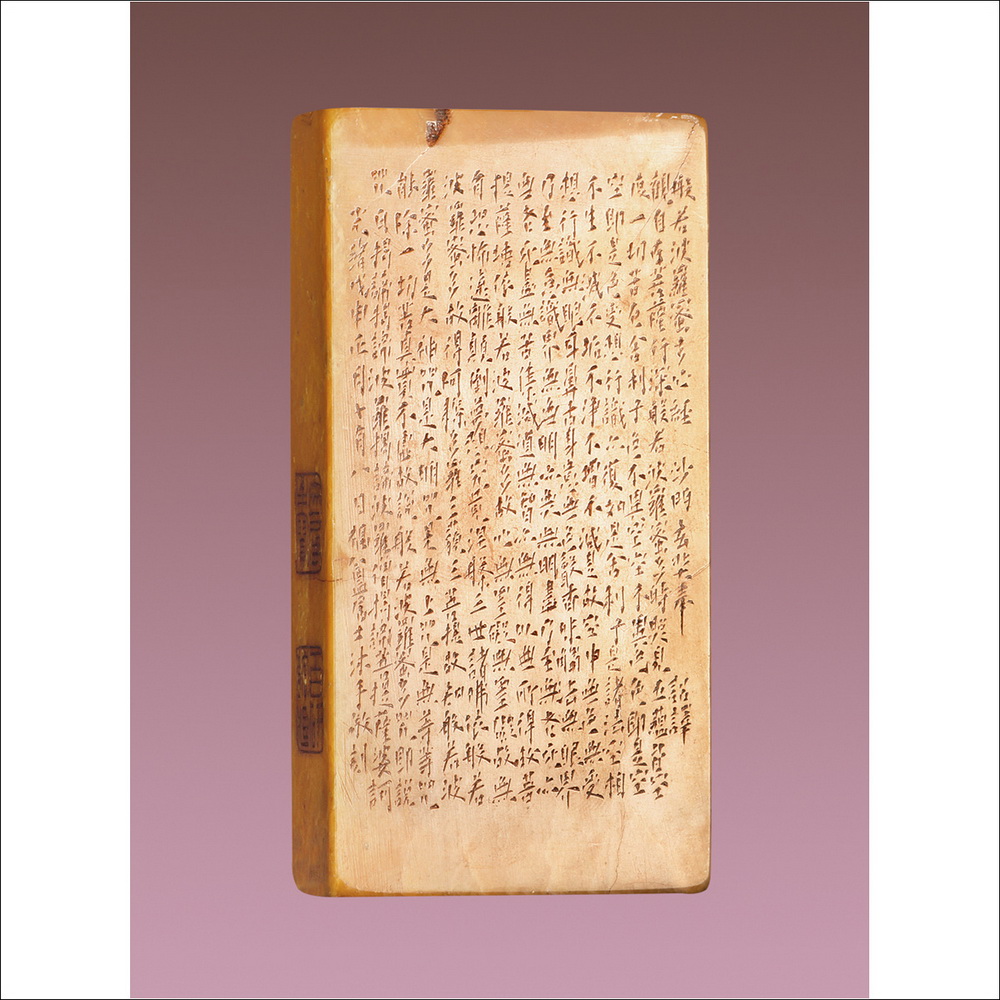 般若波羅蜜多心経 沙門玄奘奉 詔譯
觀自在菩薩行深般若波羅蜜多時照見五蘊皆空
度一切苦厄舍利子色不異空空不異色色即是空
空即是色受想行識亦復如是舍利子是諸法空相
不生不滅不垢不淨不增不減是故空中無色無受
想行識無眼耳鼻舌身意無色聲香味觸法無眼界
乃至無意識界無無明亦無無明盡乃至無老死亦
無老死盡無苦集滅道無智亦無得以無所得故菩
提薩埵依般若波羅蜜多故心無罣礙無罣礙故無
有恐怖遠離顛倒夢想究竟涅槃三世諸佛依般若
波羅蜜多故得阿耨多羅三藐三菩提故知般若波
羅蜜多是大神咒是大明咒是無上咒是無等等咒
能除一切苦真實不虛故說般若波羅蜜多咒即說
咒曰揭諦揭諦波羅揭諦波羅僧揭諦菩提薩婆訶
光緒戊申正月十有八日盦居士沐手敬刻